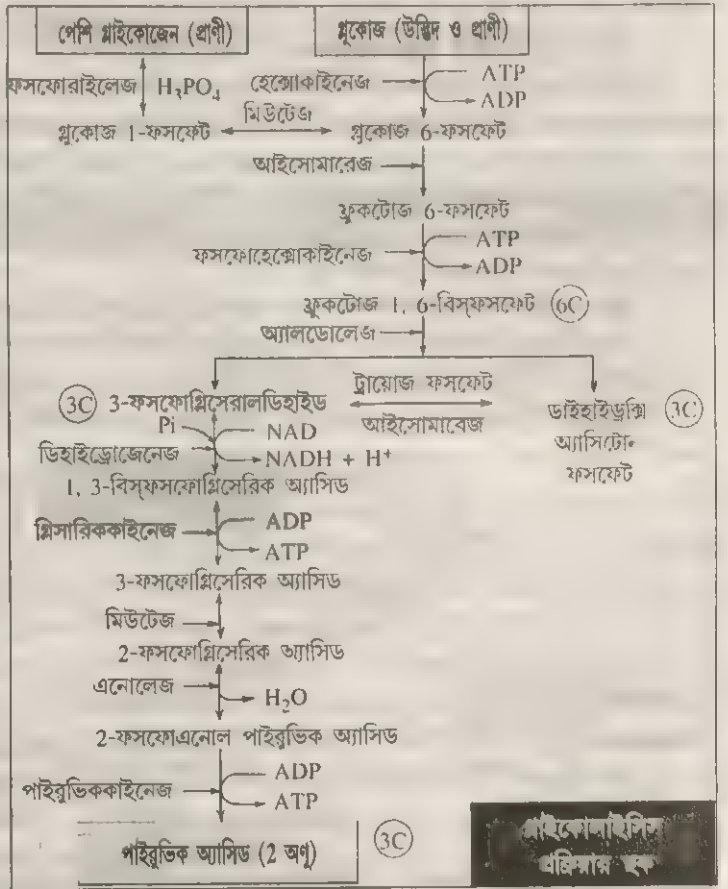 পেশি গ্লাইকোজেন (প্রাণী)
গ্লুকোজ (উদ্ভিদ ও প্রাণী)
ফসফোরাইলেজ
H₃PO₄
হেক্সোকাইনেজ
ATP
ADP
মিউটেজ
গ্লুকোজ 1-ফসফেট
গ্লুকোজ 6-ফসফেট
আইসোমারেজ
ফ্রুকটোজ 6-ফসফেট
ফসফোহেক্সোকাইনেজ
ATP
ADP
ফ্রুকটোজ 1, 6-বিস্‌ফসফেট
6C
অ্যালডোলেজ
3C
3-ফসফোগ্লিসেরালডিহাইড
ট্রায়োজ ফসফেট
আইসোমাবেজ
ডাইহাইড্রক্সি
অ্যাসিটোন-
ফসফেট
3C
Pi
NAD
ডিহাইড্রোজেনেজ
NADH + H⁺
1, 3-বিস্‌ফসফোগ্লিসেরিক অ্যাসিড
গ্লিসারিককাইনেজ
ADP
ATP
3-ফসফোগ্লিসেরিক অ্যাসিড
মিউটেজ
2-ফসফোগ্লিসেরিক অ্যাসিড
এনোলেজ
H₂O
2-ফসফোএনোল পাইরুভিক অ্যাসিড
পাইরুভিককাইনেজ
ADP
ATP
পাইরুভিক অ্যাসিড (2 অণু)
3C
গ্লাইকোলাইসিস
প্রক্রিয়ার ছক